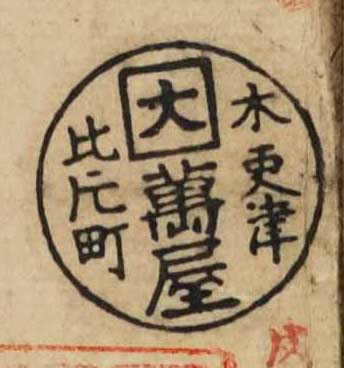 木更津
大
萬屋
比片町